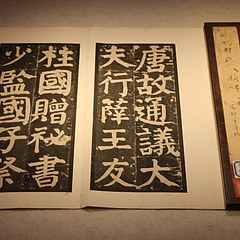 唐故通議大
夫行薛王友
柱國贈祕書
少監國子祭